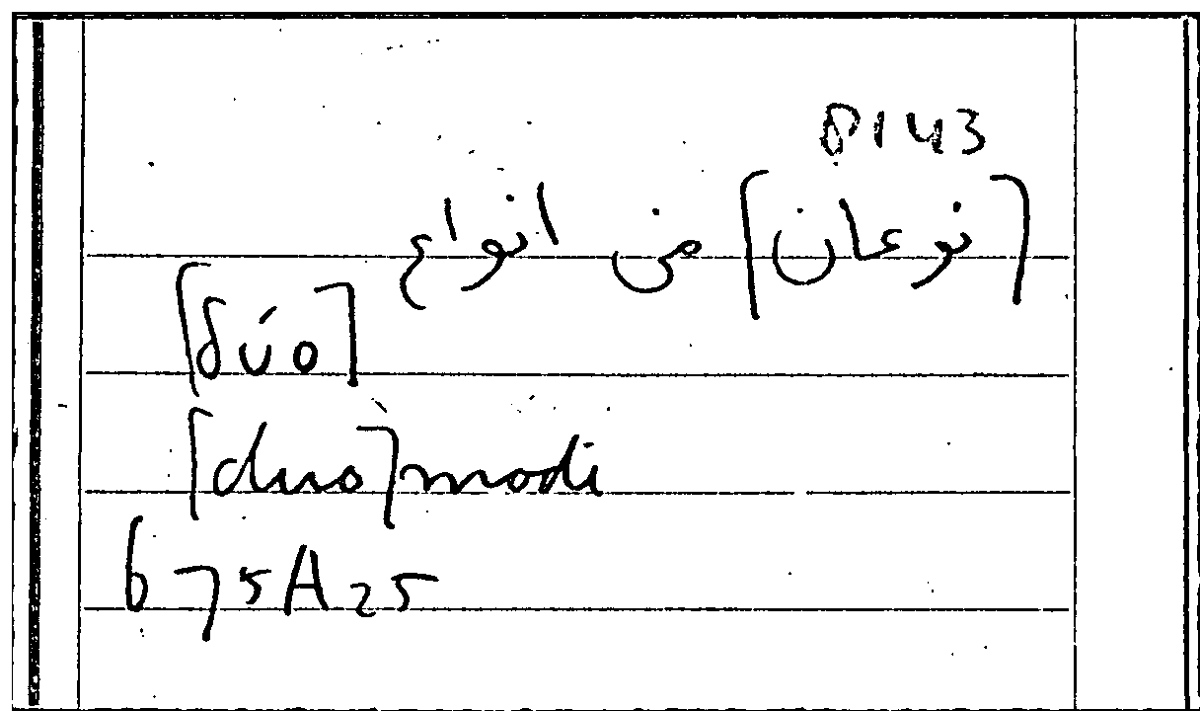 P143
[نوعان] من انواع
[δύο]
[duo] modi
675A25